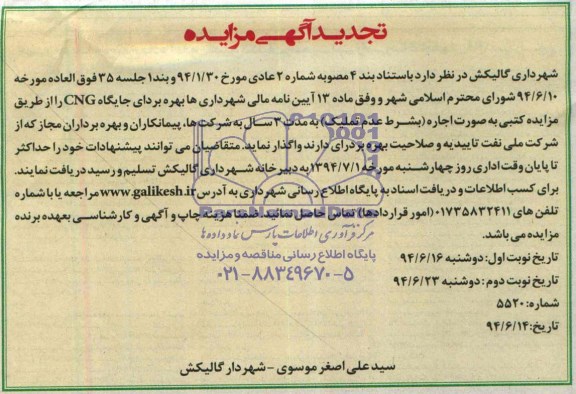 تجدید آگهی مزایده
شهرداری گالیکش در نظر دارد باستناد بند ۴ مصوبه شماره ۲ عادی مورخ ۹۴/۱/۳۰ و بند ۱ جلسه ۳۵ فوق العاده مورخه
۹۴/۶/۱۰ شورای محترم اسلامی شهر و وفق ماده ۱۳ آیین نامه مالی شهرداری ها بهره بردای جایگاه CNG را از طریق
مزایده کتبی به صورت اجاره (بشرط عدم تملک) به مدت ۳ سال به شرکت ها، پیمانکاران و بهره برداران مجاز که از
شرکت ملی نفت تاییدیه و صلاحیت بهره بردرای دارند واگذار نماید. متقاضیان می توانند پیشنهادات خود را حداکثر
تا پایان وقت اداری روز چهارشنبه مورخه ۱۳۹۴/۷/۱ به دبیرخانه شهرداری گالیکش تسلیم و رسید دریافت نمایند.
برای کسب اطلاعات و دریافت اسناد به پایگاه اطلاع رسانی شهرداری به آدرس www.galikesh.ir مراجعه یا با شماره
تلفن های ۰۱۷۳۵۸۳۲۴۱۱ (امور قراردادها) تماس حاصل نمائید. ضمنا هزینه چاپ و آگهی و کارشناسی بعهده برنده
مزایده می باشد.
مرکز فرآوری اطلاعات پارس نماد داده ها
پایگاه اطلاع رسانی مناقصه و مزایده
۰۲۱-۸۸۳۴۹۶۷۰-۵
تاریخ نوبت اول: دوشنبه ۹۴/۶/۱۶
تاریخ نوبت دوم: دوشنبه ۹۴/۶/۲۳
شماره: ۵۵۲۰
تاریخ: ۹۴/۶/۱۴
سید علی اصغر موسوی - شهردار گالیکش